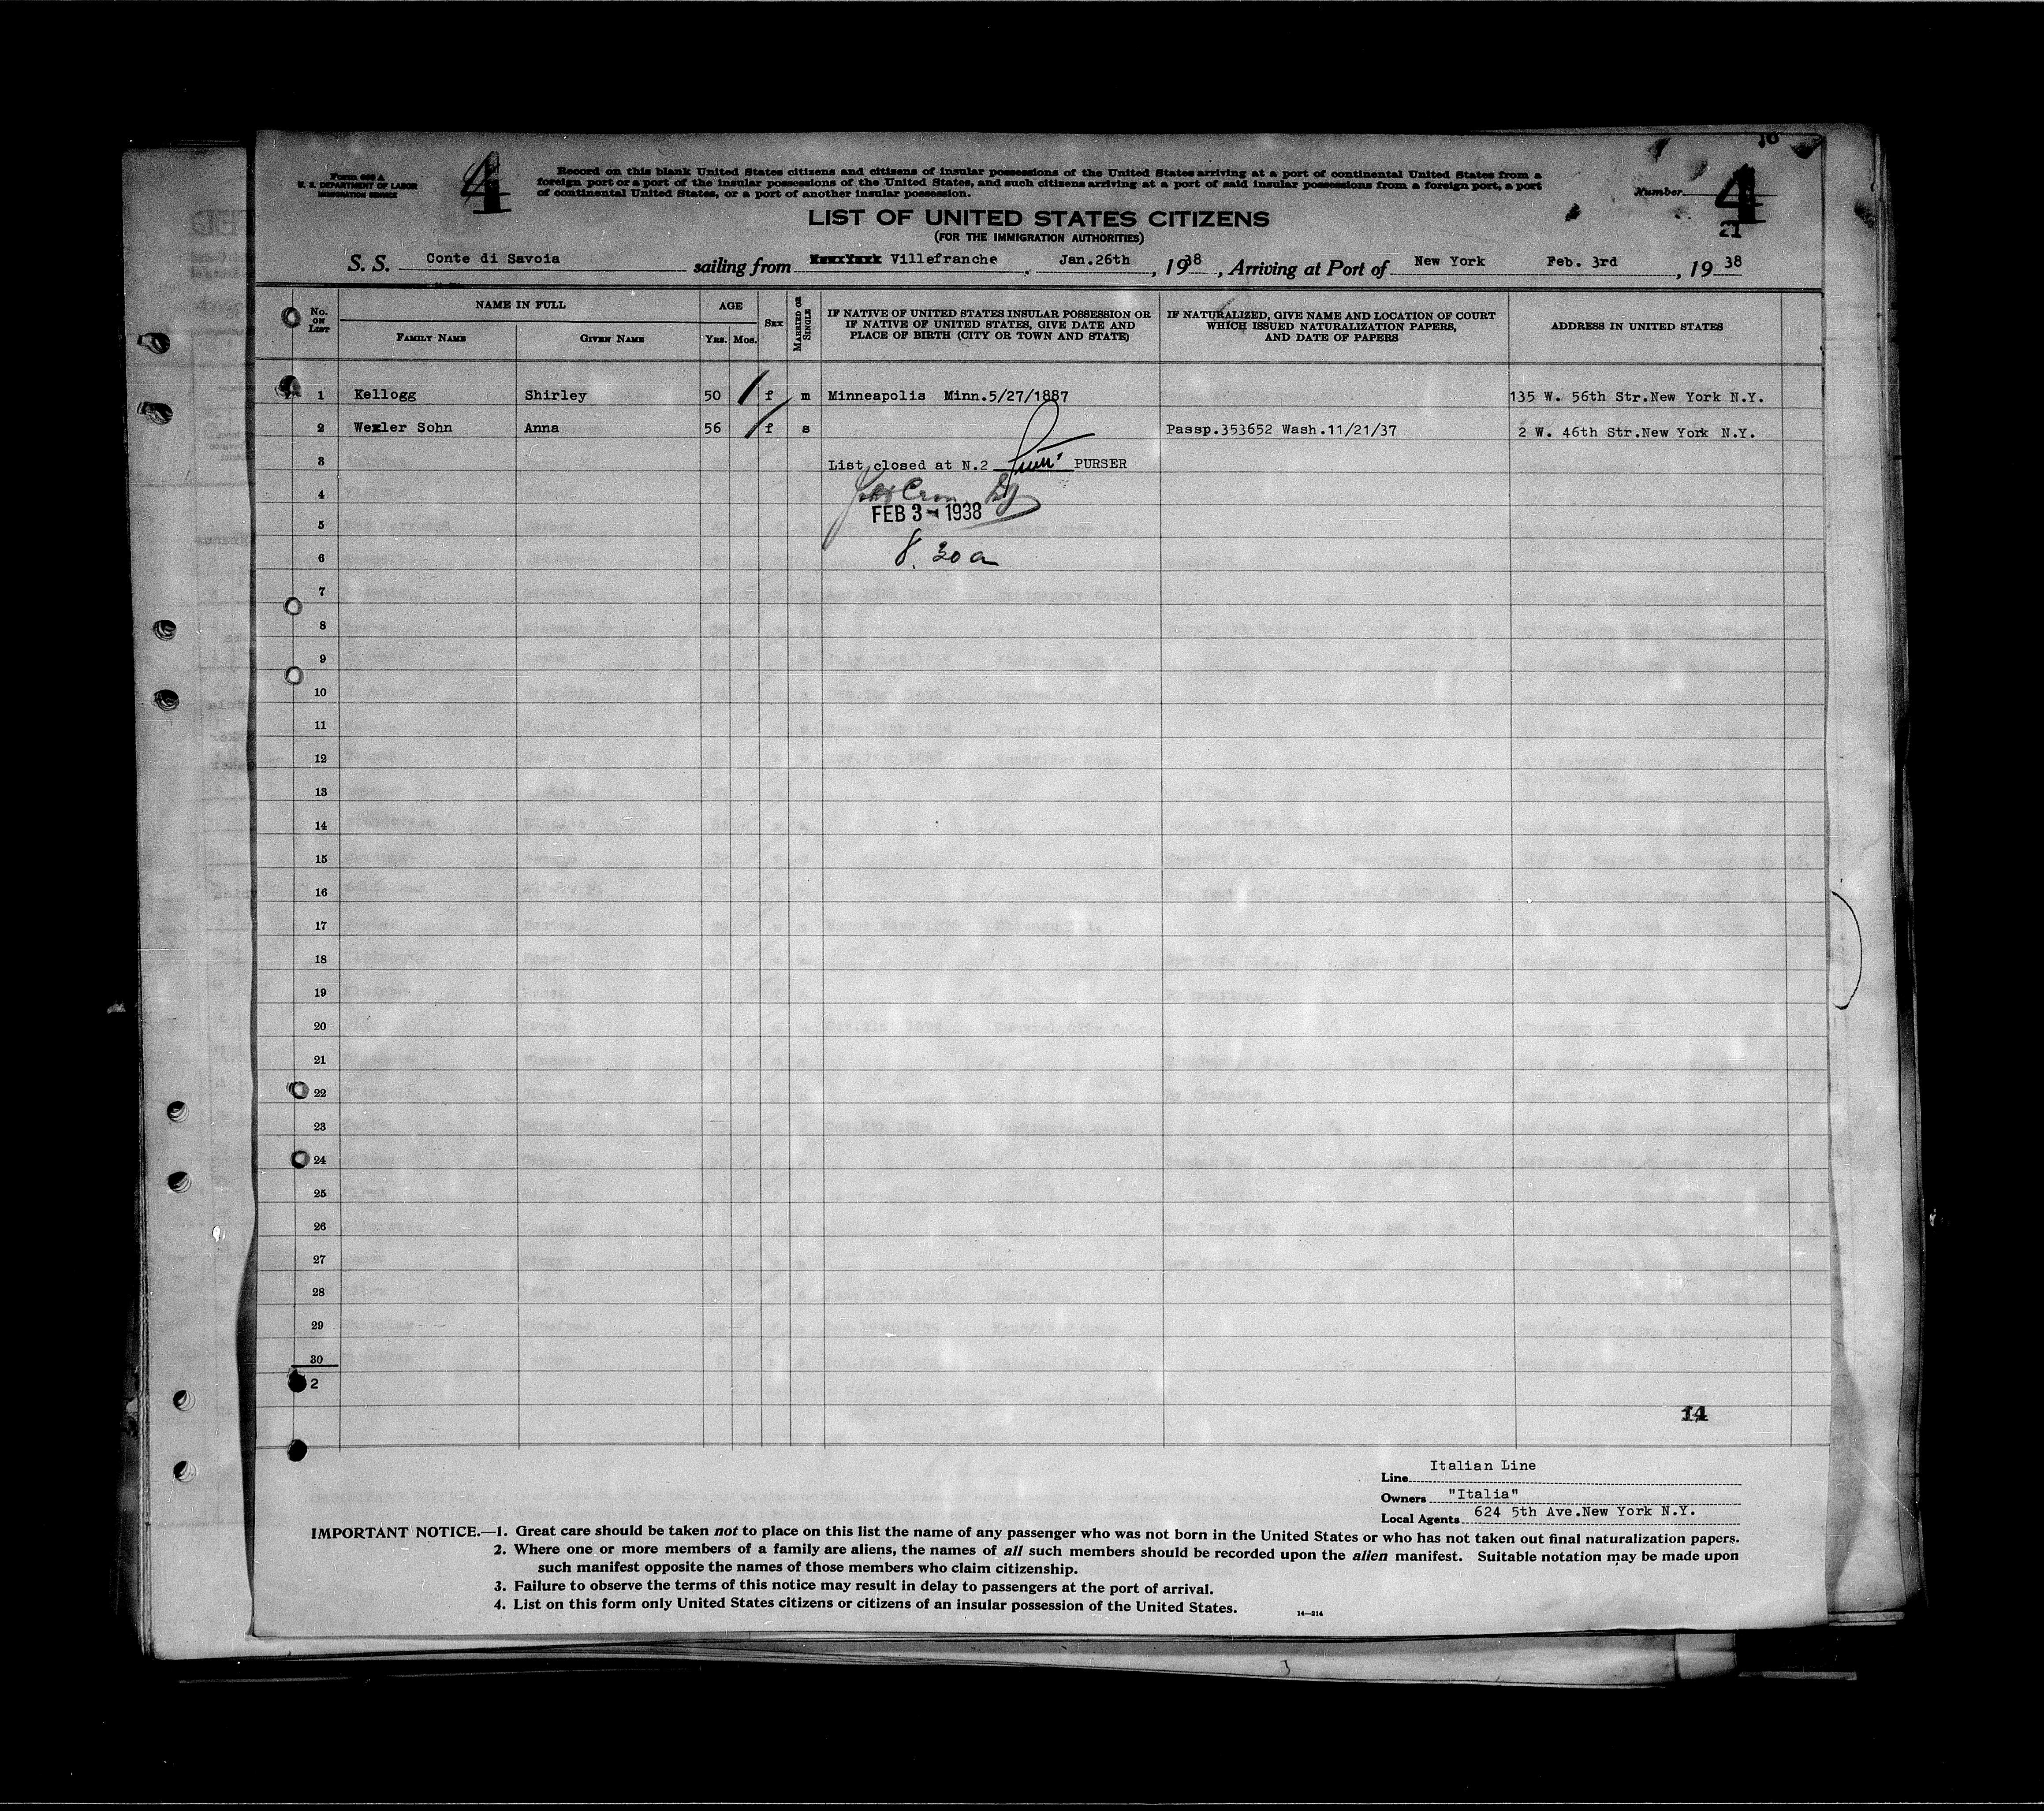 Form 630 A
U. S. DEPARTMENT OF LABOR
IMMIGRATION SERVICE
4
Record on this blank United States citizens and citizens of insular possessions of the United States arriving at a port of continental United States from a
foreign port or a port of the insular possessions of the United States, and such citizens arriving at a port of said insular possessions from a foreign port, a port
of continental United States, or a port of another insular possession.
Number 4
21
LIST OF UNITED STATES CITIZENS
(FOR THE IMMIGRATION AUTHORITIES)
S. S. Conte di Savoia sailing from Villefranche, Jan.26th, 1938, Arriving at Port of New York Feb. 3rd, 1938
No. ON LIST
NAME IN FULL
FAMILY NAME
GIVEN NAME
AGE
YRS. MOS.
SEX
MARRIED OR SINGLE
IF NATIVE OF UNITED STATES INSULAR POSSESSION OR
IF NATIVE OF UNITED STATES, GIVE DATE AND
PLACE OF BIRTH (CITY OR TOWN AND STATE)
IF NATURALIZED, GIVE NAME AND LOCATION OF COURT
WHICH ISSUED NATURALIZATION PAPERS,
AND DATE OF PAPERS
ADDRESS IN UNITED STATES
1 Kellogg Shirley 50 f m Minneapolis Minn.5/27/1887 135 W. 56th Str.New York N.Y.
2 Wexler Sohn Anna 56 f s Passp.353652 Wash.11/21/37 2 W. 46th Str.New York N.Y.
3 List closed at N.2 PURSER
4
5 FEB 3 - 1938
6 8.30a
7
8
9
10
11
12
13
14
15
16
17
18
19
20
21
22
23
24
25
26
27
28
29
30
2
14
Line Italian Line
Owners "Italia"
Local Agents 624 5th Ave.New York N.Y.
IMPORTANT NOTICE.—1. Great care should be taken not to place on this list the name of any passenger who was not born in the United States or who has not taken out final naturalization papers.
2. Where one or more members of a family are aliens, the names of all such members should be recorded upon the alien manifest. Suitable notation may be made upon
such manifest opposite the names of those members who claim citizenship.
3. Failure to observe the terms of this notice may result in delay to passengers at the port of arrival.
4. List on this form only United States citizens or citizens of an insular possession of the United States.
14—214